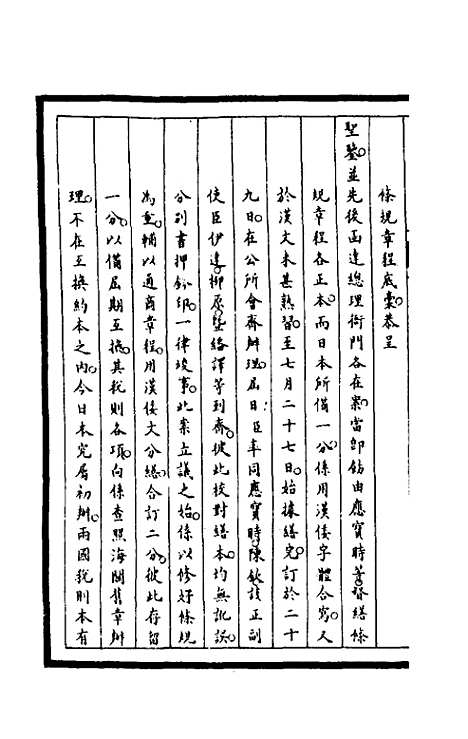 條規章程底稾恭呈
聖鑒並先後函達總理衙門各在案當即飭由應寶時等督繕條
規章程各正本而日本所備一分係用漢倭字體合寫人
於漢文未甚熟習至七月二十七日始據繕完訂於二十
九日在公所會齊辦理屆日臣率同應寶時陳欽該正副
使臣伊達柳原暨繙譯等到齊彼此校對繕本均無訛誤
分別書押鈐印一律竣事此案立議之始係以修好條規
為重輔以通商章程用漢倭文分繕合訂二分彼此存留
一分以備屆期互換其稅則各項向係查照海關舊章辦
理不在互換約本之內今日本究屬初辦兩國稅則本有